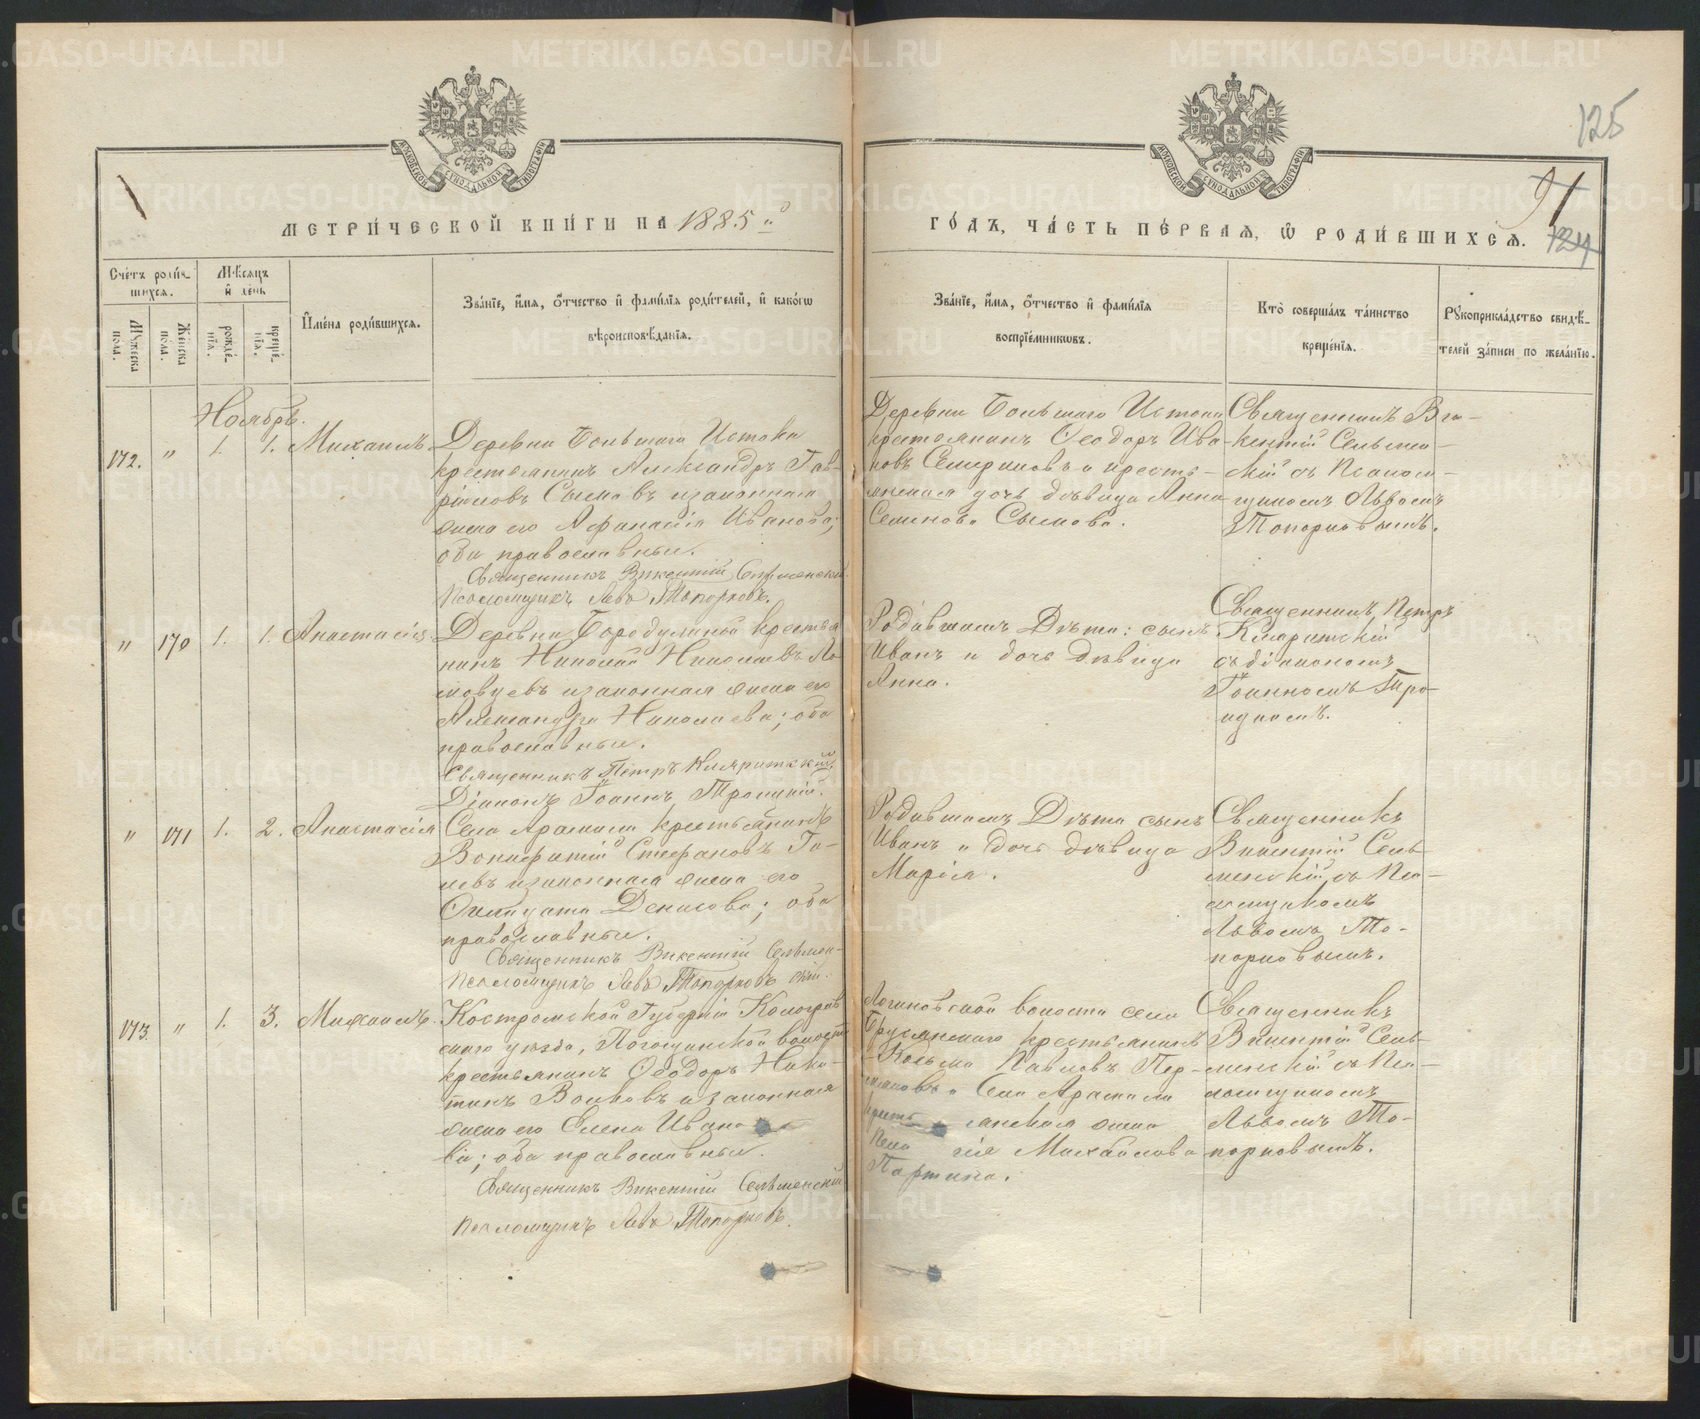 125
91
124
МЕТРИЧЕСКОЙ КНИГИ НА 1885й
ГОДЪ, ЧАСТЬ ПЕРВАЯ, Ѡ РОДИВШИХСЯ.
Счетъ родившихся.
Мужеска пола.
Женска пола.
Мѣсяцъ и день
рожденія.
крещенія.
Имена родившихся.
Званіе, имя, отчество и фамилія родителей, и какогѡ
вѣроисповѣданія.
Званіе, имя, отчество и фамилія
воспріемниковъ.
Кто совершалъ таинство
крещенія.
Рукоприкладство свидѣ-
телей записи по желанію.
Ноябрь.
172. " 1. 1. Михаилъ.
Деревни Большаго Истока
крестьянинъ Александръ Гав-
ріиловъ Сысковъ и законная
жена его Афанасія Иванова;
оба православные.
Священникъ Викентій Сельменскій
Псаломщикъ Левъ Топорковъ.
Деревни Большаго Истока
крестьянинъ Ѳеодоръ Ива-
новъ Семериковъ и кресть-
янская дочь дѣвица Анна
Семенова Сыскова.
Священникъ Ви-
кентій Сельмен-
скій съ Псалом-
щикомъ Львомъ
Топорковымъ.
" 170 1. 1. Анастасія.
Деревни Бородулиной крестья
нинъ Николай Николаевъ Ло
мовцевъ и законная жена его
Александра Николаева; оба
православные.
Священникъ Петръ Кларитскій
Діаконъ Іоаннъ Троицкій.
Родившаго Дѣти: сынъ
Иванъ и дочь дѣвица
Анна.
Священникъ Петръ
Кларитскій
съ діакономъ
Іоанномъ Тро-
ицкимъ.
" 171 1. 2. Анастасія
Села Арамили крестьянинъ
Вонифатій Стефановъ Га-
левъ и законная жена его
Денисова; оба
православные.
Священникъ Викентій Сельмен-
Псаломщикъ Левъ Топорковъ скій.
Родившаго Дѣти сынъ
Иванъ и дочь дѣвица
Марія.
Священникъ
Викентій Сель-
менскій съ Пса-
ломщикомъ
Львомъ То-
порковымъ.
173. " 1. 3. Михаилъ.
Костромской Губерніи Кологрив
скаго уѣзда, волости
крестьянинъ Ѳеодоръ Ники-
тинъ Волковъ и законная
жена его Елена Ивано
ва; оба православные.
Священникъ Викентій Сельменскій
Псаломщикъ Левъ Топорковъ.
Логиновской волости села
Бруснянскаго крестьянинъ
Козьма Павловъ Пер-
и Села Арамили
крестьянская жена
Михайлова
Партина.
Священникъ
Викентій Сель-
менскій съ Пса-
ломщикомъ
Львомъ То-
порковымъ.